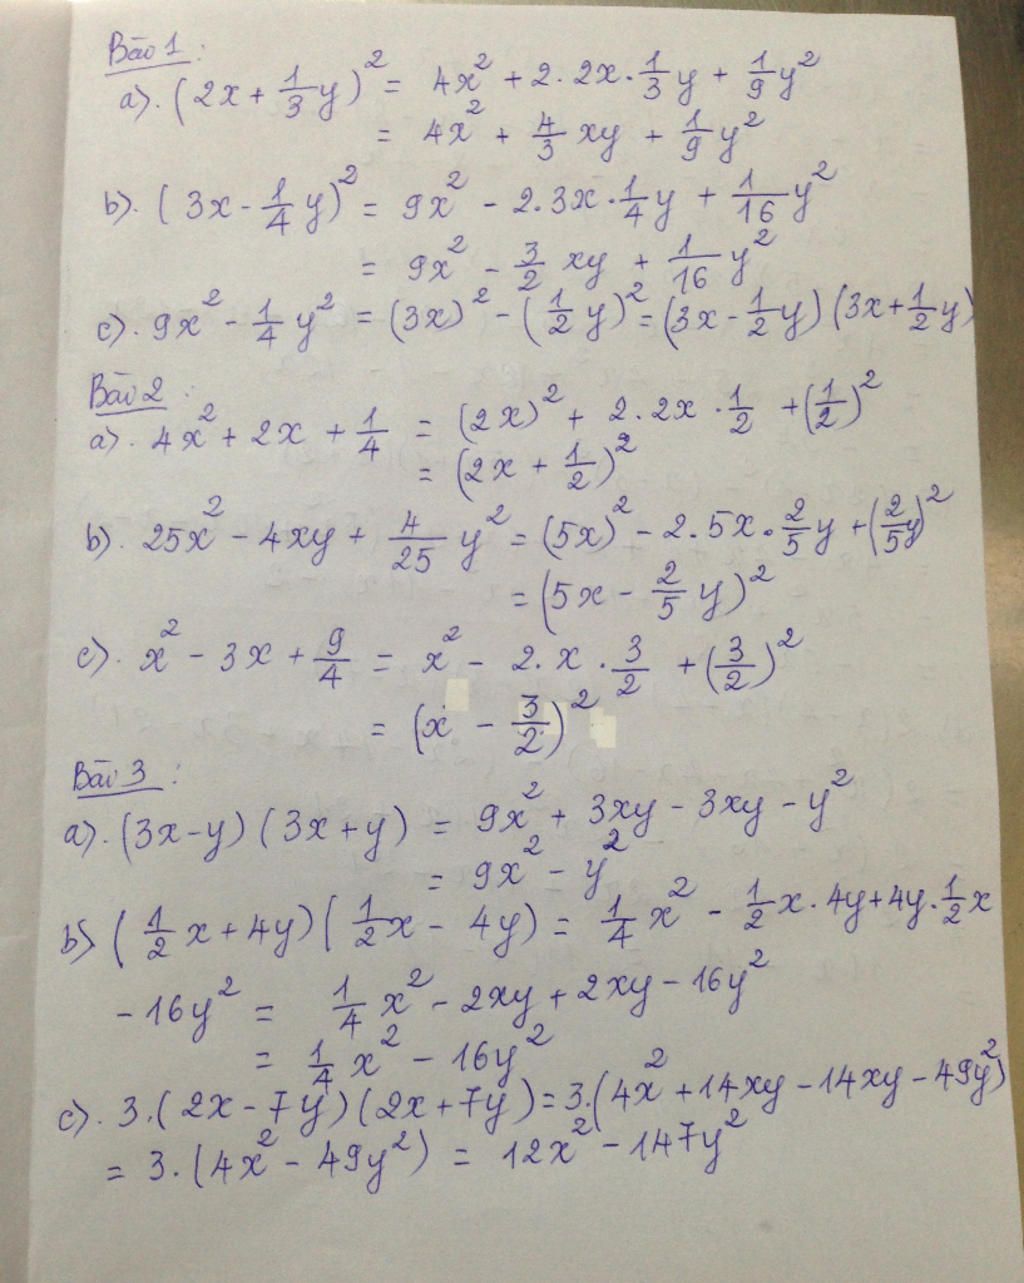 Bài 1 :
a). (2x + 1/3 y)² = 4x² + 2. 2x . 1/3 y + 1/9 y²
= 4x² + 4/3 xy + 1/9 y²
b). (3x - 1/4 y)² = 9x² - 2.3x . 1/4 y + 1/16 y²
= 9x² - 3/2 xy + 1/16 y²
c). 9x² - 1/4 y² = (3x)² - (1/2 y)² = (3x - 1/2 y) (3x + 1/2 y)
Bài 2 :
a). 4x² + 2x + 1/4 = (2x)² + 2. 2x . 1/2 + (1/2)²
= (2x + 1/2)²
b). 25x² - 4xy + 4/25 y² = (5x)² - 2.5x . 2/5 y + (2/5 y)²
= (5x - 2/5 y)²
c). x² - 3x + 9/4 = x² - 2. x . 3/2 + (3/2)²
= (x - 3/2)²
Bài 3 :
a). (3x - y) (3x + y) = 9x² + 3xy - 3xy - y²
= 9x² - y²
b) (1/2 x + 4y) (1/2 x - 4y) = 1/4 x² - 1/2 x . 4y + 4y . 1/2 x
- 16y² = 1/4 x² - 2xy + 2xy - 16y²
= 1/4 x² - 16y²
c). 3. (2x - 7y) (2x + 7y) = 3. (4x² + 14xy - 14xy - 49y²)
= 3. (4x² - 49y²) = 12x² - 147y²